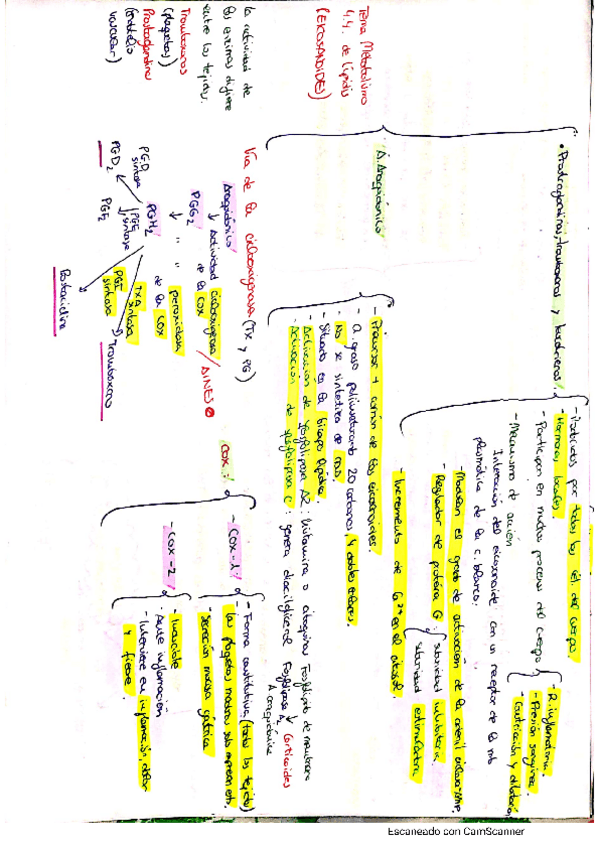 Tema Metabolismo
4.4. de lípidos
(EICOSANOIDES)
• Prostaglandinas, tromboxanos y leucotrienos
- Producidos por todas las cél del cuerpo.
- Hormonas locales.
- Participan en muchos procesos del cuerpo
- R. inflamatoria.
- Presión sanguínea.
- Mecanismo de acción
Interacción del eicosanoide con un receptor de la mb
plasmática de la c. blanco.
- Modulan el grado de activación de la adenil ciclasa
- Regulador de proteína G
subunidad inhibitoria.
subunidad estimuladora
- Incremento de Ca2+ en el citosol.
A. Araquidónico
- Precursor + común de los eicosanoides.
- A. graso poliinsaturado 20 carbonos, 4 dobles enlaces.
- No se sintetiza de novo.
- Situado en la bicapa lipídica.
- Activación de fosfolipasa A2:
Fosfolípido de membrana
- Activación de fosfolipasa C: genera diacilglicerol
Fosfolipasa A2
Corticoides
Araquidónico
Vía de la ciclooxigenasa (TX y PG)
la actividad de
las enzimas difiere
entre los tejidos.
Tromboxanos
(plaquetas)
Prostaglandinas
(endotelio
vascular)
Araquidónico
↓ Actividad ciclooxigenasa / AINES
de la COX
PGG2
↓ " peroxidasa
de la COX
PGH2
PGD
sintasa
PGD2
PGE
sintasa
PGE2
PGI
sintasa
TXA
sintasa
Prostaciclina
Tromboxano
COX
- COX-1
- Forma constitutiva (todos los tejidos)
- las plaquetas maduras solo expresan esta.
- Secreción mucosa gástrica
- COX-2
- Inducible
- Ante inflamación
- Interviene en inflamación, dolor
y fiebre.
Escaneado con CamScanner